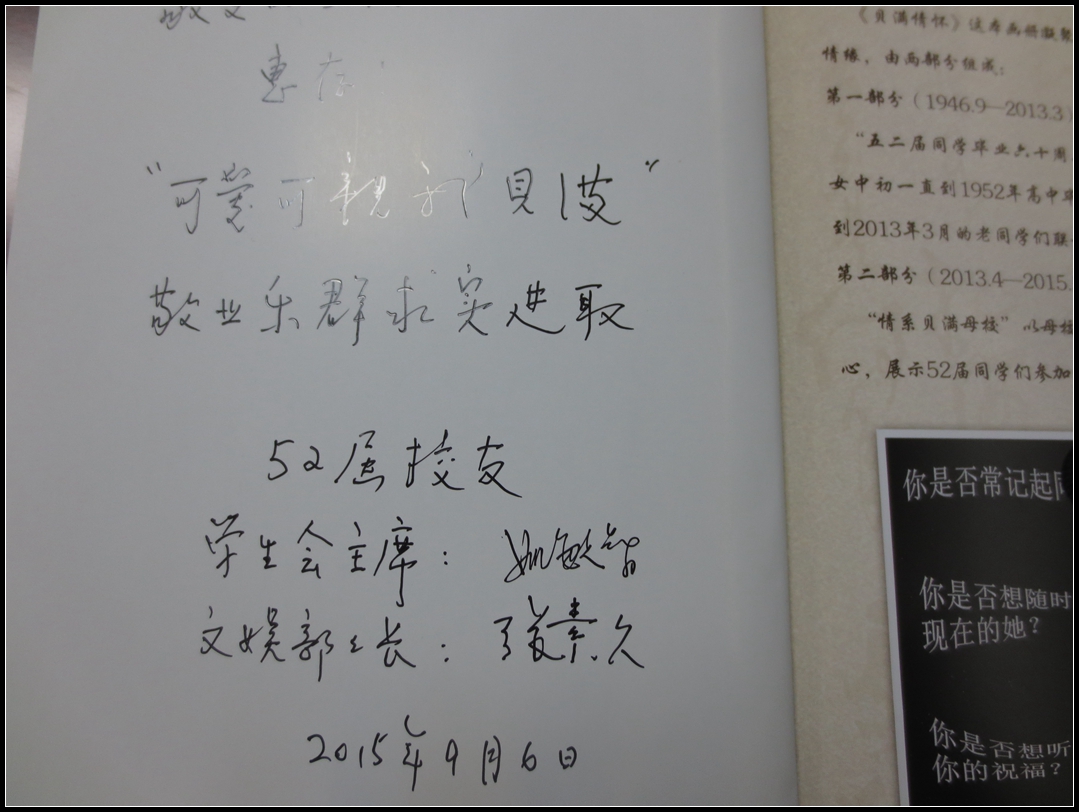 惠存
“可爱可亲的贝满”
敬业乐群求实进取
52届校友
学生会主席：姚
文娱部々长：张素久
2015年9月6日
《贝满情怀》这本画册凝聚
情缘，由两部分组成：
第一部分（1946.9—2013.3）
“五二届同学毕业六十周
女中初一直到1952年高中毕
到2013年3月的老同学们联
第二部分（2013.4—2015.
“情系贝满母校”以母校
心，展示52届同学们参加
你是否常记起同
你是否想随时
现在的她？
你是否想听
你的祝福？